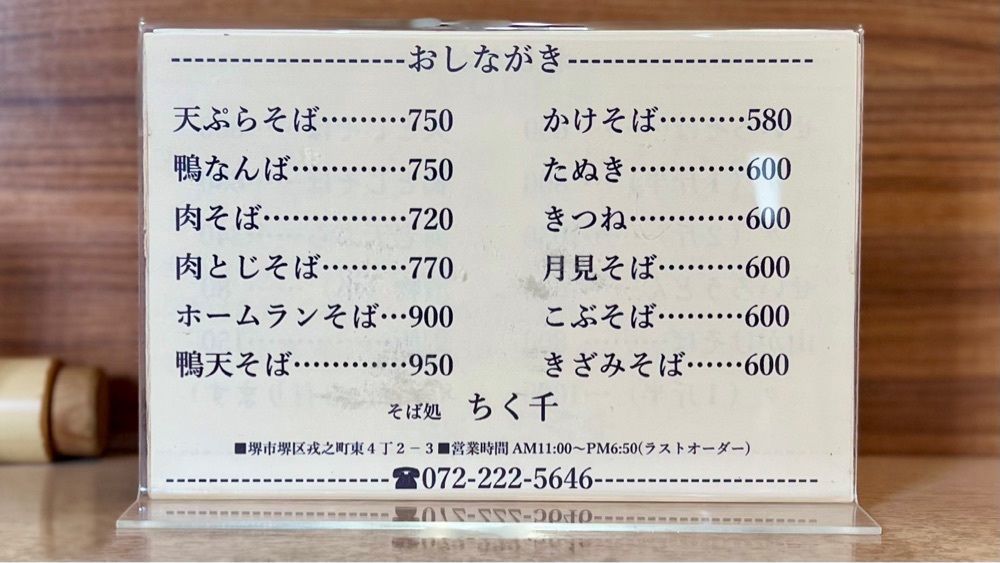 おしながき
天ぷらそば………750
鴨なんば…………750
肉そば……………720
肉とじそば………770
ホームランそば…900
鴨天そば…………950
かけそば………580
たぬき…………600
きつね…………600
月見そば………600
こぶそば………600
きざみそば……600
そば処 ちく千
■堺市堺区戎之町東4丁2－3■営業時間 AM11:00〜PM6:50(ラストオーダー)
☎072-222-5646